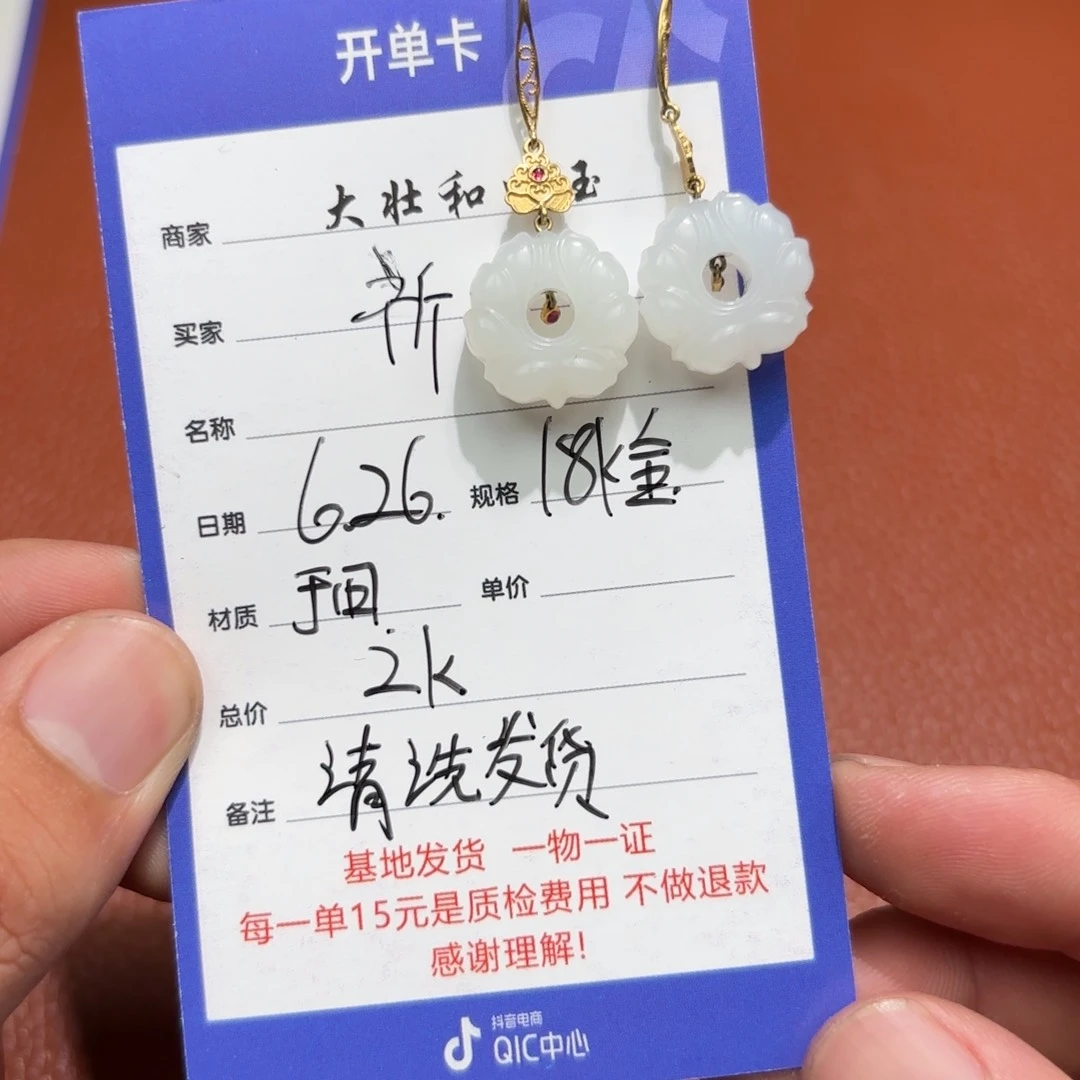 开单卡
商家 大壮和 玉
买家
名称
日期 6.26. 规格 18K金.
材质 于田. 单价
总价 2K
备注 清洗发货
基地发货 一物一证
每一单15元是质检费用 不做退款
感谢理解!
抖音电商
QIC中心